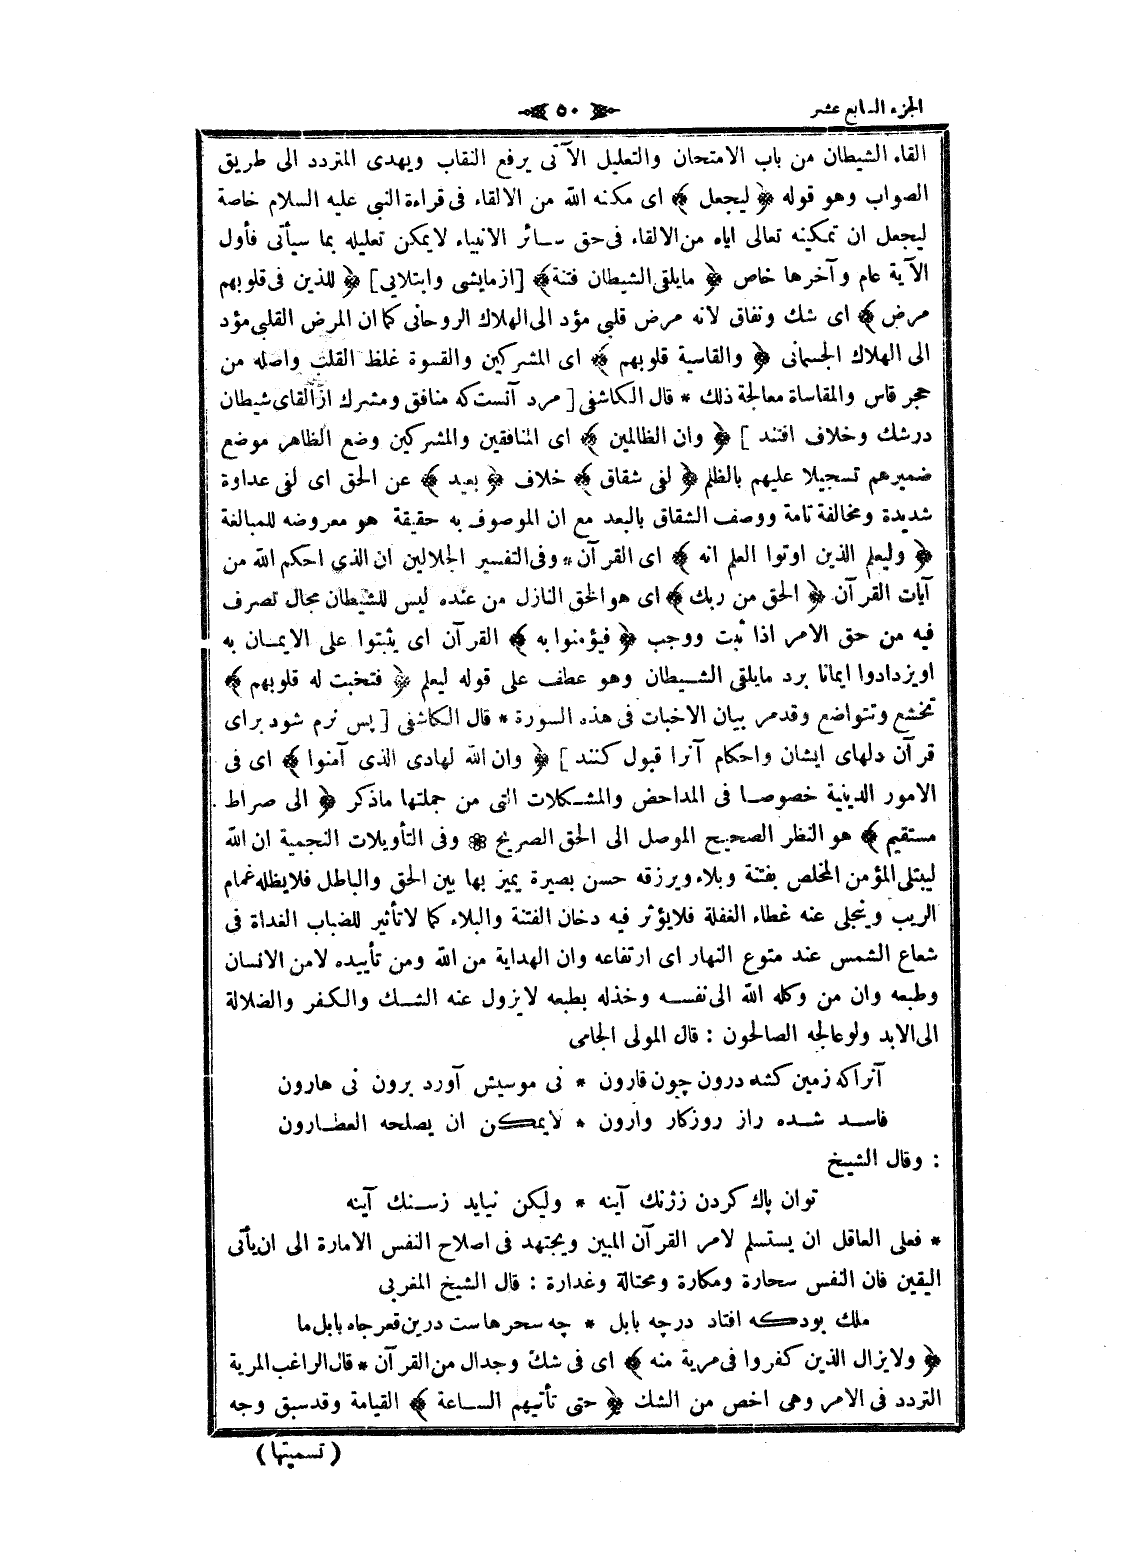 الجزء السابع عشر
٥٠
القاء الشيطان من باب الامتحان والتعليل الآتى يرفع النقاب ويهدى المتردد الى طريق
الصواب وهو قوله ﴿ ليجعل ﴾ اى مكنه الله من الالقاء فى قراءة النبى عليه السلام خاصة
ليجعل ان تمكينه تعالى اياه من الالقاء فى حق سائر الانبياء لايمكن تعليله بما سيأتى فأول
الآية عام وآخرها خاص ﴿ مايلقى الشيطان فتنة ﴾ [ازمايشى وابتلايى] ﴿ للذين فى قلوبهم
مرض ﴾ اى شك ونفاق لانه مرض قلبى مؤد الى الهلاك الروحانى كما ان المرض القلبى مؤد
الى الهلاك الجسمانى ﴿ والقاسية قلوبهم ﴾ اى المشركين والقسوة غلظ القلب واصله من
حجر قاس والمقاساة معالجة ذلك * قال الكاشفى [ مرد آنست كه منافق ومشرك ازالقاى شيطان
درشك وخلاف افتند ] ﴿ وان الظالمين ﴾ اى المنافقين والمشركين وضع الظاهر موضع
ضميرهم تسجيلا عليهم بالظلم ﴿ لفى شقاق ﴾ خلاف ﴿ بعيد ﴾ عن الحق اى لفى عداوة
شديدة ومخالفة تامة ووصف الشقاق بالبعد مع ان الموصوف به حقيقة هو معروضه للمبالغة
﴿ وليعلم الذين اوتوا العلم انه ﴾ اى القرآن * وفى التفسير الجلالين ان الذي احكم الله من
آيات القرآن ﴿ الحق من ربك ﴾ اى هو الحق النازل من عنده ليس للشيطان مجال تصرف
فيه من حق الامر اذا ثبت ووجب ﴿ فيؤمنوا به ﴾ القرآن اى يثبتوا على الايمان به
اويزدادوا ايمانا برد مايلقى الشيطان وهو عطف على قوله ليعلم ﴿ فتخبت له قلوبهم ﴾
تخشع وتتواضع وقدمر بيان الاخبات فى هذه السورة * قال الكاشفى [ پس نرم شود براى
قرآن دلهاى ايشان واحكام آنرا قبول كنند ] ﴿ وان الله لهادى الذى آمنوا ﴾ اى فى
الامور الدينية خصوصا فى المداحض والمشكلات التى من جملتها ماذكر ﴿ الى صراط
مستقيم ﴾ هو النظر الصحيح الموصل الى الحق الصريح * وفى التأويلات النجمية ان الله
ليبتلى المؤمن المخلص بفتنة وبلاء ويرزقه حسن بصيرة يميز بها بين الحق والباطل فلايظله غمام
الريب وينجلى عنه غطاء الغفلة فلايؤثر فيه دخان الفتنة والبلاء كما لاتأثير للضباب الغداة فى
شعاع الشمس عند متوع النهار اى ارتفاعه وان الهداية من الله ومن تأييده لامن الانسان
وطبعه وان من وكله الله الى نفسه وخذله بطبعه لايزول عنه الشك والكفر والضلالة
الى الابد ولوعالجه الصالحون : قال المولى الجامى
آنراكه زمين كشد درون چون قارون * نى موسيش آورد برون نى هارون
فاسد شده راز روزكار وارون * لايمكن ان يصلحه العطارون
: وقال الشيخ
توان پاك كردن ززنك آينه * وليكن نيايد زسنك آينه
* فعلى العاقل ان يستسلم لامر القرآن المبين ويجتهد فى اصلاح النفس الامارة الى ان يأتى
اليقين فان النفس سحارة ومكارة ومحتالة وغدارة : قال الشيخ المغربى
ملك بودكه افتاد درچه بابل * چه سحرهاست درين قعرجاه بابل ما
﴿ ولايزال الذين كفروا فى مرية منه ﴾ اى فى شك وجدال من القرآن * قال الراغب المرية
التردد فى الامر وهى اخص من الشك ﴿ حتى تأتيهم الساعة ﴾ القيامة وقدسبق وجه
( تسميتها )